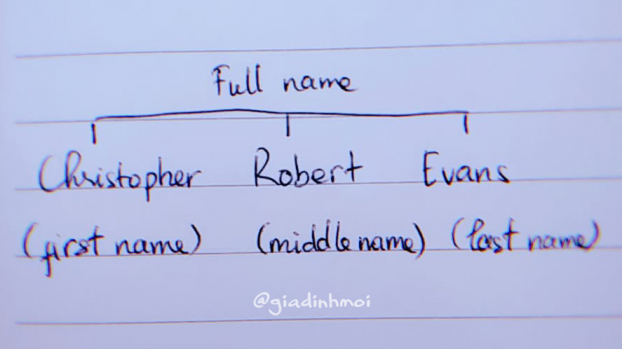 Full name
Christopher Robert Evans
(first name) (middle name) (last name)
@giadinhmoi